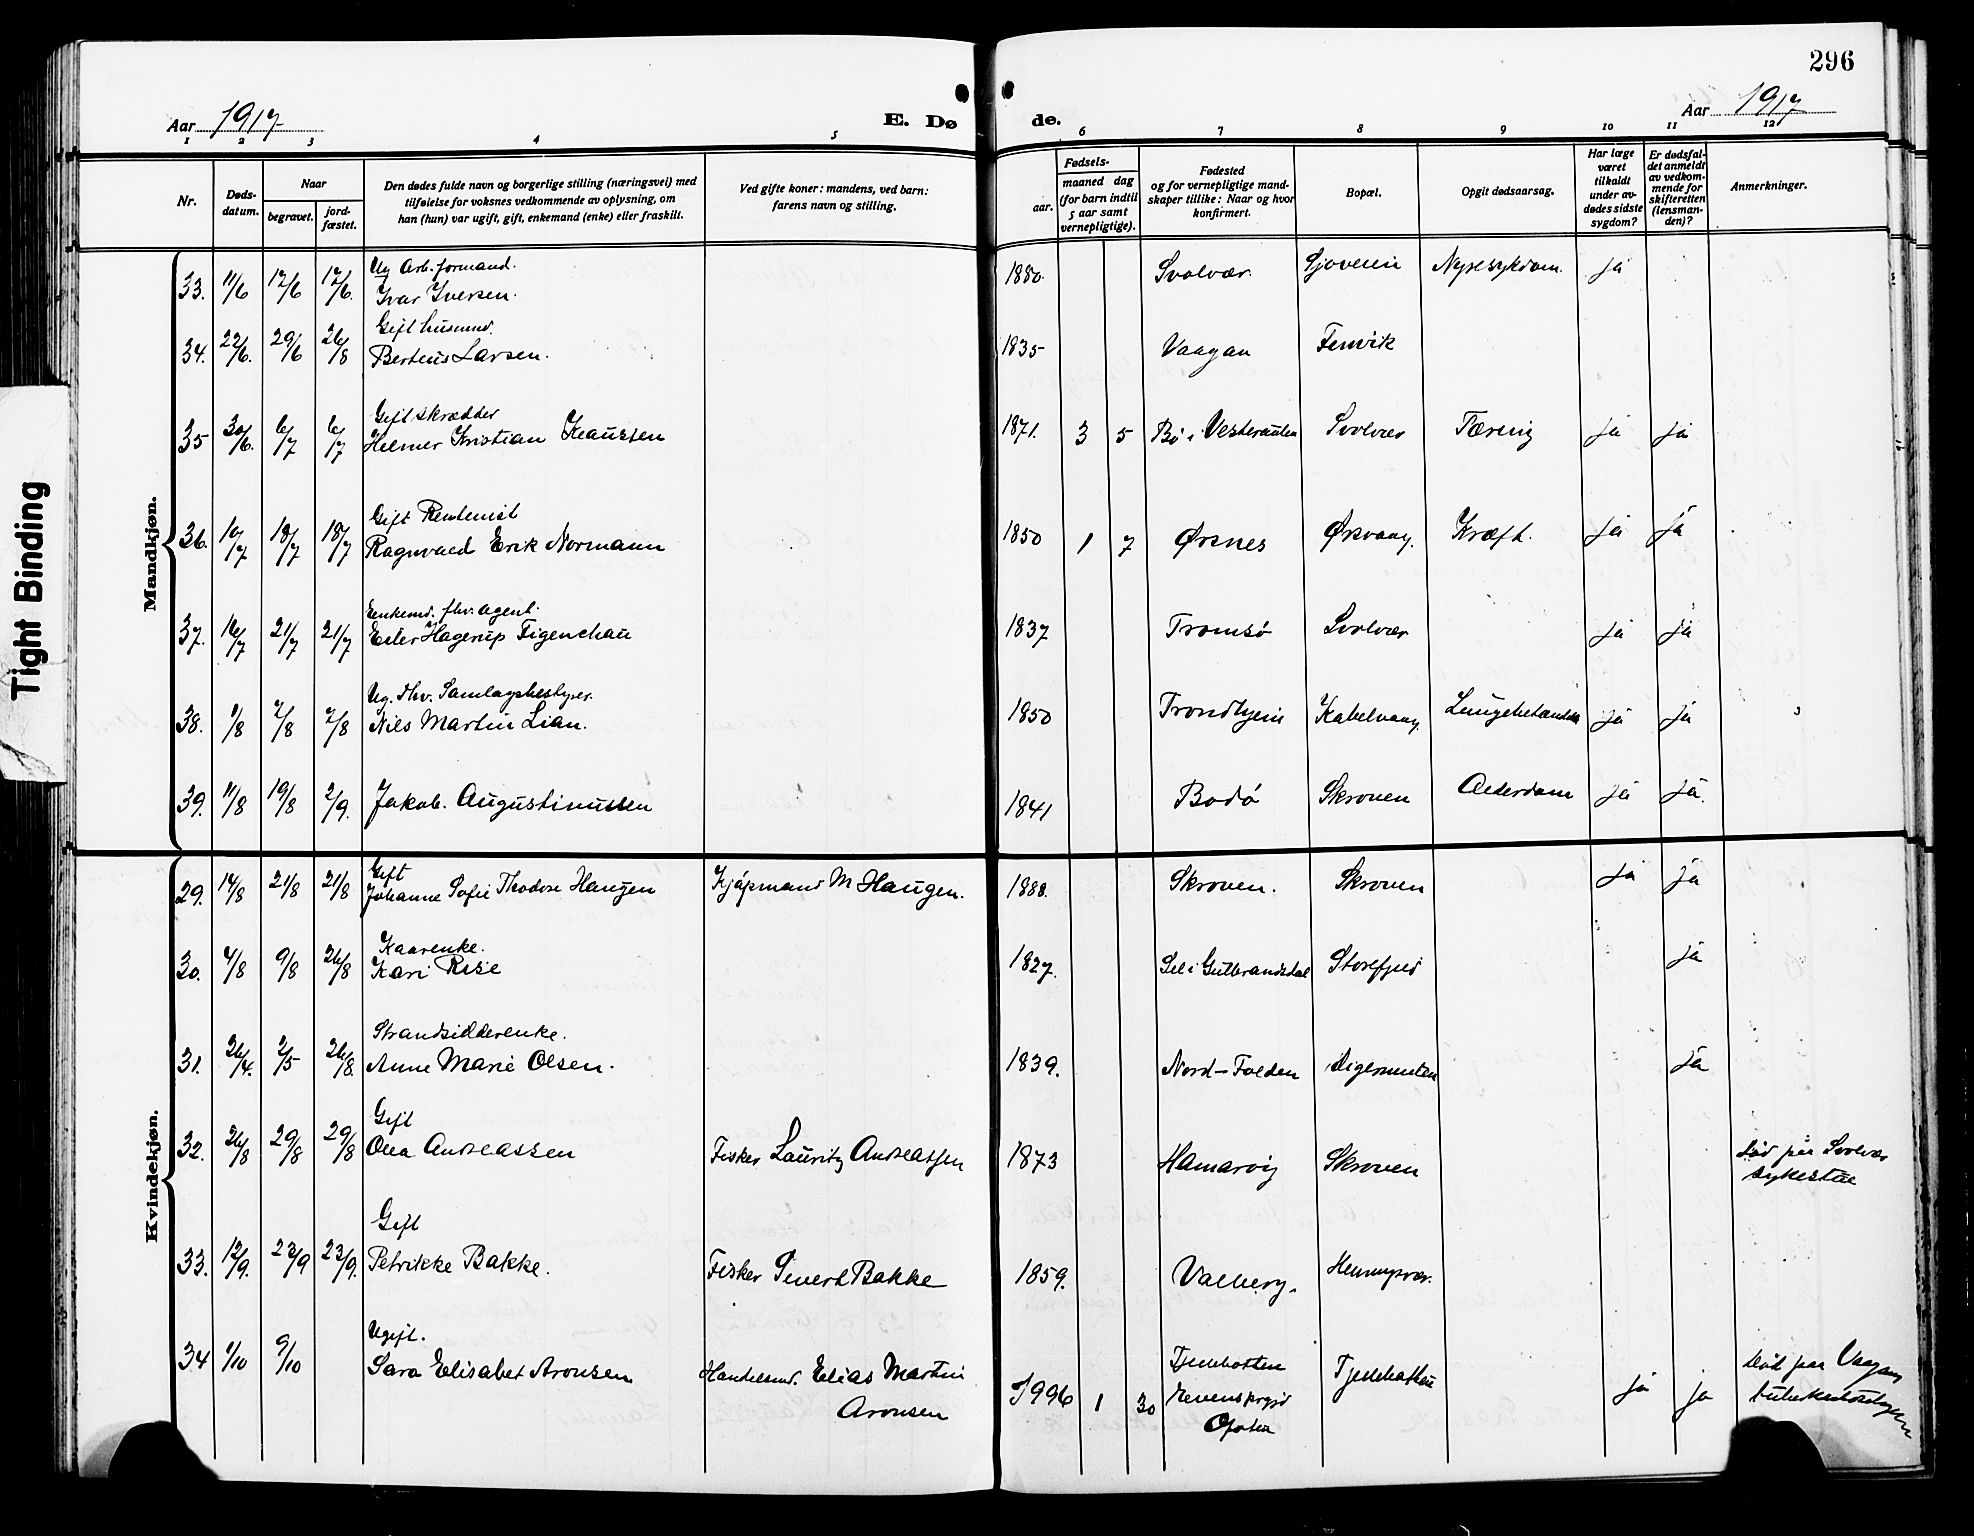 296
Aar 1917
E. Dø de.
Aar 1917
1 2 3 4 5 6 7 8 9 10 11 12
Nr.
Døds-
datum.
Naar
begravet.
jord-
fæstet.
Den dødes fulde navn og borgerlige stilling (næringsvei) med
tilføielse for voksnes vedkommende av oplysning, om
han (hun) var ugift, gift, enkemand (enke) eller fraskilt.
Ved gifte koner: mandens, ved barn:
farens navn og stilling.
Fødsels-
aar.
maaned dag
(for barn indtil
5 aar samt
vernepligtige).
Fødested
og for vernepligtige mand-
skaper tillike: Naar og hvor
konfirmert.
Bopæl.
Opgit dødsaarsag.
Har læge
været
tilkaldt
under av-
dødes sidste
sygdom?
Er dødsfal-
det anmeldt
av vedkom-
mende for
skifteretten
(lensman-
den)?
Anmerkninger.
Tight Binding
Mandkjøn.
Ug Arb. formand.
33. 11/6 17/6 17/6. Ivar Iversen. 1880. Svolvær. Nyresykdom. ja
Gift husmd.
34. 22/6. 29/6 26/8 Berteus Larsen. 1835 Vaagan
Gift skrædder
35 30/6. 6/7 6/7 Helmer Kristian Klaussen 1871. 3 5 Bø i Vesteraalen Svolvær Tæring ja ja
Gift Rentenist
36. 10/7 18/7 18/7 Ragnvald Erik Normann 1850 1 7 Ørsnes Ørsvaag. Kræft. ja ja
Enkemd. fhv. agent.
37. 16/7 21/7 21/7 Eiler Hagerup Figenchau 1837 Tromsø Svolvær ja ja
Ug. fhv. Samlagsbestyrer.
38. 1/8 7/8 7/8 Nils Martin Lian. 1850 Trondhjem Kabelvaag. Lungebetændelse ja ja
39. 11/8 19/8 2/9. Jakob. Augustinussen 1841 Bodø Skroven Alderdom ja ja.
Kvindekjøn.
Gift
29. 14/8 21/8 21/8 Johanne Sofie Thodore Haugen Kjøpmand M Haugen. 1888. Skroven. Skroven ja ja
Kaarenke.
30. 4/8 9/8 26/8 Kari Rise 1827. Sel i Gulbrandsdal Storfjeld ja
Strandsidderenke.
31. 26/4. 2/5 26/8. Anne Marie Olsen. 1839. Nord-Folden Digermulen ja
Gift
32. 26/8 29/8 29/8 Olea Andreassen Fisker Lauritz Andreassen 1873 Hamarøy Skroven Død på Svolvær
sykestue
Gift
33. 12/9. 23/9 23/9. Petrikke Bakke. Fisker Sivert Bakke 1859. Valberg. Henningsvær.
Ugift.
34 1/10 9/10 Sara Elisabet Aronsen Handelsmd. Elias Martin
Aronsen
1996 1 30 Tjeldebotten
Ofoten
Tjeldebotten ja ja Død paa Vaagan